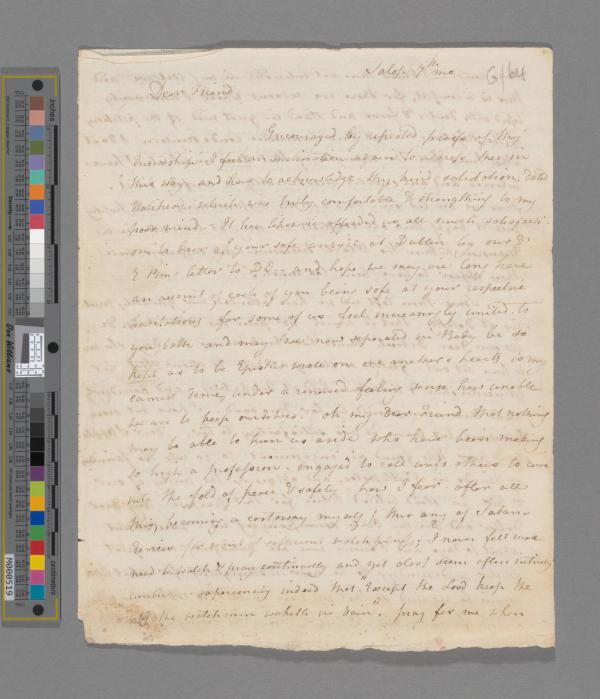 Salop 7th mo
G/64
Dear Friend
Encouraged by repeated proofs of thy
Friendship I feel an inclination again to address thee in
this way, and have to acknowledge thy kind salutation, dated
which was truly comfortable & strengthing to my
poor mind. It has likewise afforded us all much satisfacti
on to hear of your safe arrival at Dublin by our Fr
letter to and hope we may ere long have
an account of each of you being safe at your respective
habitations for some of us feel increasingly united to
you both and may we now separated in Body be so
as to be Epistles wrote on one another's hearts is my
earnest desire, under a renewed feeling sense how unable
we are to keep ourselves. oh my Dear Friend that nothing
may be able to turn us aside who have been making
so high a profession. engaged to call unto others to come
into the fold of peace & safety, how I fear after all
this becoming a castaway myself thro any of Satans
for want of sufficient watchfulness; I never felt more
need to watch & pray continually and yet alas! seem often intirely
unable. experiencing indeed that "Except the Lord keep the
City the watchman waketh in vain". pray for me when
inches
centimeters
Don Williams
M000519